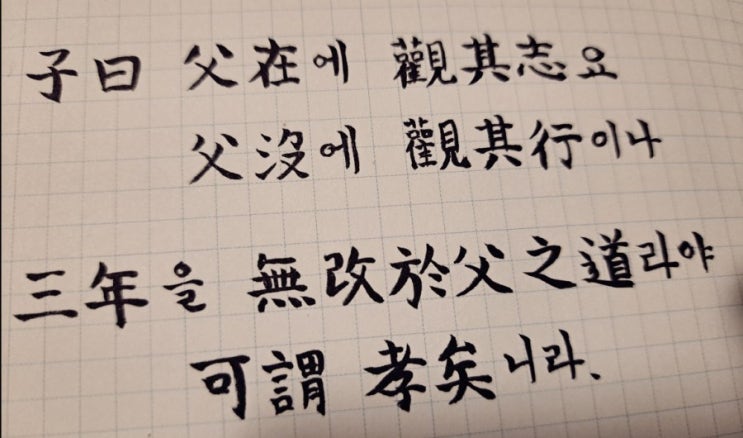 子曰 父在에 觀其志요
父沒에 觀其行이나
三年을 無改於父之道라야
可謂 孝矣니라.